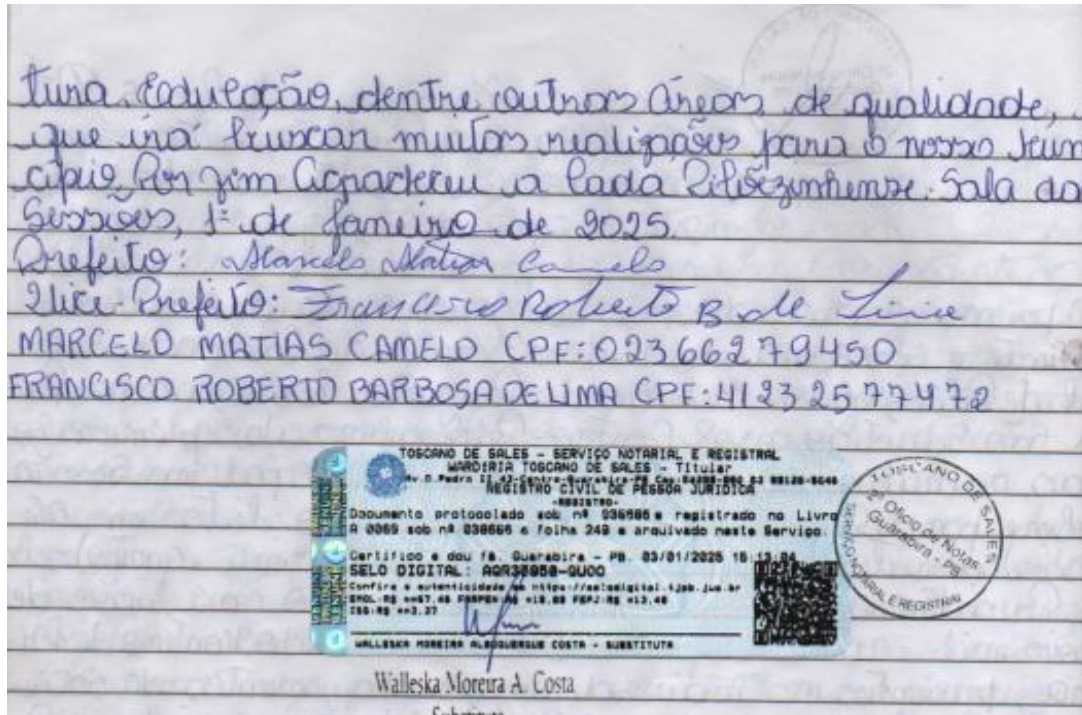 tura, Educação, dentre outras áreas de qualidade,
que irá buscar muitas realizações para o nosso Muni
cípio, Por fim Agradeceu a Cada Pilõezinhense. Sala das
Sessões, 1º de Janeiro de 2025.
Prefeito: Marcelo Matias Camelo
Vice-Prefeito: Francisco Roberto B de Lima
MARCELO MATIAS CAMELO CPF:02366279450
FRANCISCO ROBERTO BARBOSA DE LIMA CPF:41232577472
TOSCANO DE SALES - SERVIÇO NOTARIAL E REGISTRAL
WARDIRIA TOSCANO DE SALES - Titular
Av.D.Pedro II Centro-Guarabira-PB
REGISTRO CIVIL DE PESSOA JURIDICA
-REGISTRO-
Documento protocolado sob nº e registrado no Livro
A 0069 sob nº e folha 249 e arquivado neste Serviço.
Certifico e dou fé. Guarabira - PB. 03/01/2025 15:13:04
SELO DIGITAL:
Confira a autenticidade em https://selodigital.tjpb.jus.br
WALLESKA MOREIRA ALBUQUERQUE COSTA - SUBSTITUTA
TOSCANO DE SALES
2º Ofício de Notas
Guarabira - PB
SERVIÇO NOTARIAL E REGISTRAL
Walleska Moreira A. Costa
Substituta